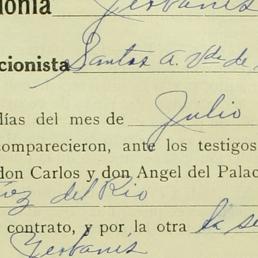 lonia Yerbanís
cionista Santos A. Vda. de
días del mes de Julio
comparecieron, ante los testigos
don Carlos y don Angel del Palac
del Río
contrato, y por la otra la se
Yerbanís